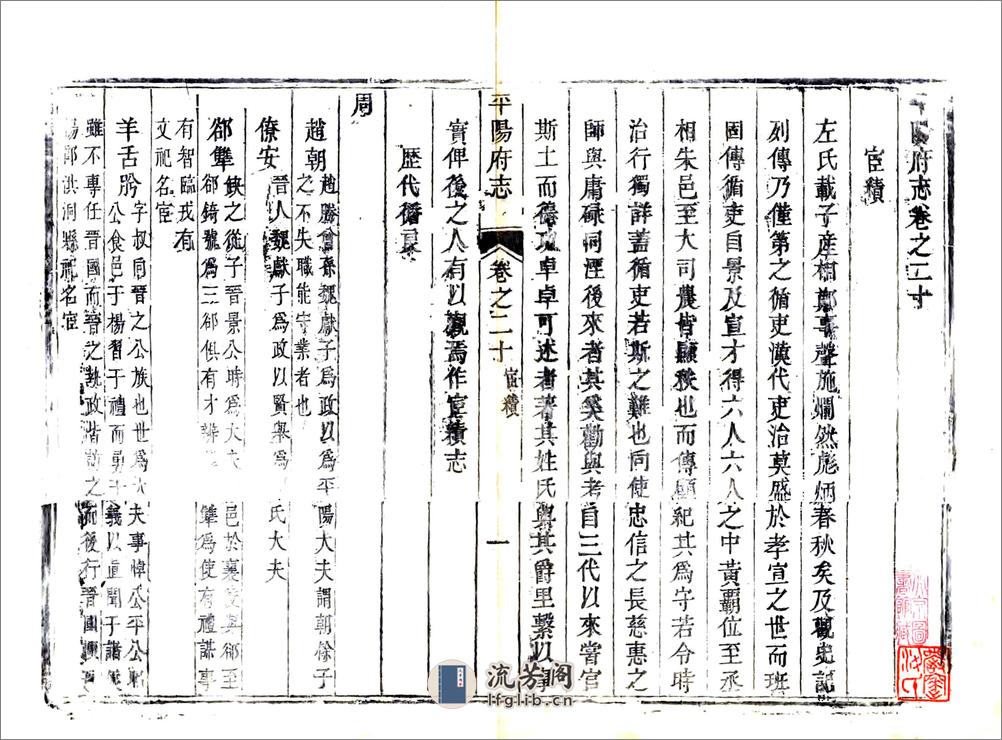 平陽府志卷之二十
宦績
左氏載子產相鄭事聲施爛然彪炳春秋矣及觀史記
列傳乃僅第之循吏漢代吏治莫盛於孝宣之世而班
固傳循吏自景及宣才得六人六人之中黃霸位至丞
相朱邑至大司農皆顯秩也而傳顧紀其為守若令時
治行獨詳蓋循吏若斯之難也同使忠信之長慈惠之
師與庸碌同湮後來者其奚勸與考自三代以來嘗官
斯土而德功卓卓可述者著其姓氏與其爵里繫以事
實俾後之人有以觀焉作宦績志
平陽府志
卷之二十
宦績
一
歷代循良
周
趙朝 趙勝曾孫魏獻子為政以為平陽大夫謂朝餘子
之不失職能守業者也
僚安 晉人魏獻子為政以賢舉為 氏大夫
郤犫 缺之從子晉景公時為大夫 邑於襄陵與郤至
郤錡號為三郤俱有才辨 犫為使有禮謀事
有智臨戎有
文祀名宦
羊舌肸 字叔向晉之公族也世為大夫事悼公平公
公食邑于楊習于禮而勇于義以直聞于諸侯
雖不專任晉國而晉之執政諮訪之而後行晉國
楊即洪洞縣祀名宦
流芳閣
lfglib.cn